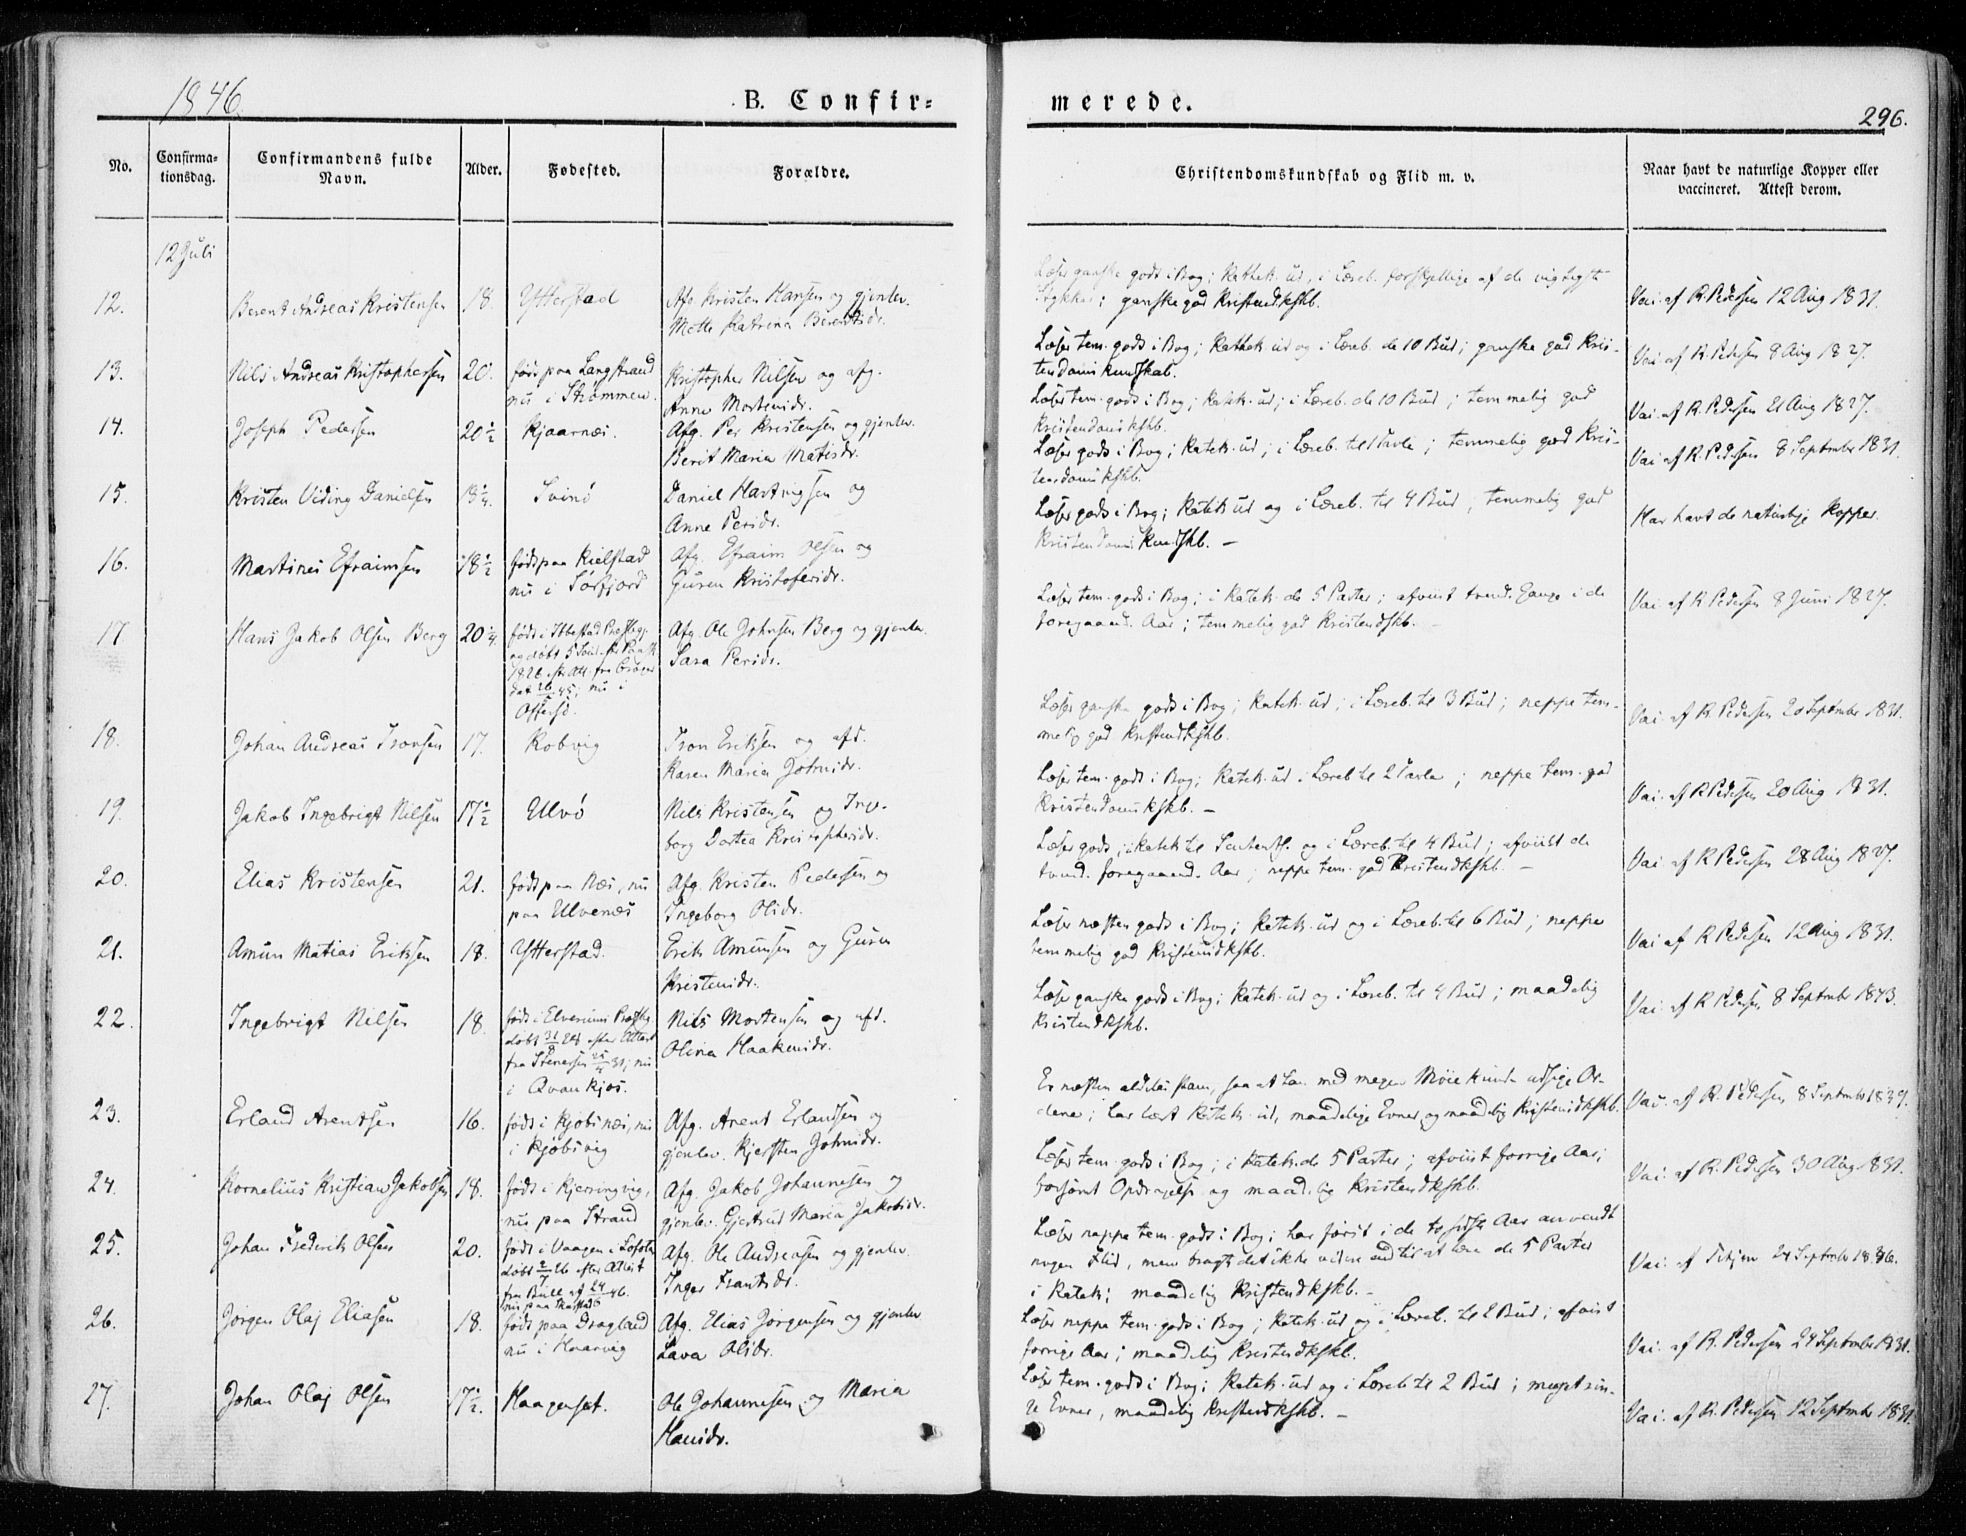 1846.
B. Confir=
merede.
296.
No.
Confirma=
tionsdag.
Confirmandens fulde
Navn.
Alder.
Fødested.
Forældre.
Christendomskundskab og Flid m. v.
Naar havt de naturlige Kopper eller
vaccineret. Attest derom.
12 Juli
12. Berent Andreas Kristensen 18. Ytterstad Afg. Kristen Hansen og gjenlev.
Mette Katrina Berentsdr.
Læser ganske godt i Bog; Kathek. ud, i Læreb. forskjellige af de vigtigste
Stykker; ganske god Kristendkskb.
Vai. af R. Pedersen 12 Aug 1831.
13. Nils Andreas Kristophersen 20. født paa Langstrand
nu i Strømmen.
Kristopher Nilsen og afg.
Anne Mortensdr.
Læser tem. godt i Bog; Kathek. ud og i Læreb. de 10 Bud; ganske god Kris-
tendomskundskab.
Vai. af R. Pedersen 8 Aug 1827.
14. Joseph Pedersen 20 1/2 Kjaarnæs. Afg. Per Kristensen og gjenlev.
Berit Maria Matisdr.
Læser tem. godt i Bog; Katek. ud; i Læreb. de 10 Bud; temmelig god
Kristendomskskb.
Vai. af R. Pedersen 21 Aug 1827.
15. Kristen Viding Danielsen 18 1/4. Svinø Daniel Hartvigsen og
Anne Persdr.
Læser godt i Bog; Katek. ud; i Læreb. til Tavle; temmelig god Kris-
tendomskskb.
Vai. af R. Pedersen 8 September 1831.
16. Martines Efraimsen 18 1/2 født paa Kielstad
nu i Sørfjord
Afg. Efraim Olsen og
Guren Kristofersdr.
Læser godt i Bog; Katek. ud og i Læreb. til 4 Bud; temmelig god
Kristendoms Kundskb. –
Har havt de naturlige Kopper.
17. Hans Jakob Olsen Berg 20 1/4. født i Ibbestad Præstegj.
og døbt 5 Sønd. før Paaske
1826
nu i
Offersø.
Afg. Ole Johnsen Berg og gjenlev.
Sara Persdr.
Læser tem. godt i Bog; i Katek. de 5 Parter; afviist tvend. Gange i de
foregaaend. Aar; temmelig god Kristendkskb.
Vai. af R. Pedersen 8 Juni 1827.
18. Johan Andreas Ironsen 17. Kobvig Iron Eriksen og afd.
Karen Maria Johnsdr.
Læser ganske godt i Bog; Katek. ud; i Læreb. til 3 Bud; neppe tem-
melig god Kristendkskb.
Vai. af R. Pedersen 20 September 1831.
19. Jakob Ingebrigt Nilsen 17 1/2 Ulvø Nils Kristensen og Inge-
borg Dortea Kristophersdr.
Læser tem. godt i Bog; Katek. ud i Læreb til 2 Tavle; neppe tem. god
Kristendomskskb. –
Vai. af R Pedersen 20 Aug 1831.
20. Elias Kristensen 21. født paa Næs, nu
paa Ulvenæs
Afg. Kristen Pedersen og
Ingeborg Olsdr.
Læser godt; i Katek til og i Læreb. til 4 Bud; afviist de
tvend. foregaaend. Aar; neppe tem. god Kristendkskb. –
Vai af R Pedersen 28 Aug 1827.
21. Amun Matias Eriksen 18. Ytterstad. Erik Amunsen og Guren
Kristensdr.
Læser næsten godt i Bog; Katek. ud og i Læreb. til 6 Bud; neppe
temmelig god Kristendkskb.
Vai af R Pedersen 12 Aug 1831.
22. Ingebrigt Nilsen 18. født i Elverums Præsteg.
døbt 31/8 28 efter Attest
fra Stenersen 31; nu
i Qvankjos.
Nils Mortensen og afd.
Olina Haakensdr.
Læser ganske godt i Bog; Katek. ud og i Læreb. til 4 Bud; maadelig
Kristendkskb.
Vai. af R Pedersen 8 September 1843.
23. Erland Arentsen 16. født i Kjobsnæs, nu
i Kjøbsvig
Afg. Arent Erlandsen og
gjenlev. Kjersten Johnsdr.
Er næsten aldeles stam, saa at han med megen Møie kunde udsige Or-
dene; har lært Katek. ud, maadelige Evner og maadelig Kristendkskb.
Vai. af R. Pedersen 8 September 1839.
24. Kornelius Kristian Jakobsen 18. født i Kjerringvig,
nu paa Strand
Afg. Jakob Johannesen og
gjenlev. Gjertrud Maria Jakobsdr.
Læser tem. godt i Bog; i Katek. de 5 Parter; afviist forrige Aar;
forsømt Opdragelse og maadelig Kristendkskb.
Vai. af R. Pedersen 30 Aug 1831.
25. Johan Frederik Olsen 20. født i Vaagen i Lofoten
døbt 2/7 26 efter Attest
fra Bull af 24/6 46.
nu paa
Afg. Ole Andreasen og gjenlev.
Inger Frantsdr.
Læser neppe tem. godt i Bog; har først i de to sidste Aar anvendt
nogen Flid, men bragte det ikke videre end til at lære de 5 Parter
i Katek; maadelig Kristendkskb. –
Vai. af 24 September 1836.
26. Jørgen Olaj Eliasen 18. født paa Dragland
nu i Haarvig
Afg. Elias Jørgensen og gjenlev
Lava Olsdr.
Læser neppe tem. godt i Bog; Katek. ud og i Læreb. til 2 Bud; afvist
forrige Aar; maadelig Kristendkskb.
Vai. af R. Pedersen 24 September 1831.
27. Johan Olaj Olsen 17 1/2. Haagenset. Ole Johannesen og Maria
Hansdr.
Læser tem. godt i Bog; Katek. ud og i Læreb til 2 Bud; meget rin-
ge Evner, maadelig Kristendkskb. –
Vai. af R. Pedersen 12 September 1831.